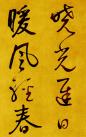 曉光連日
暖風經春